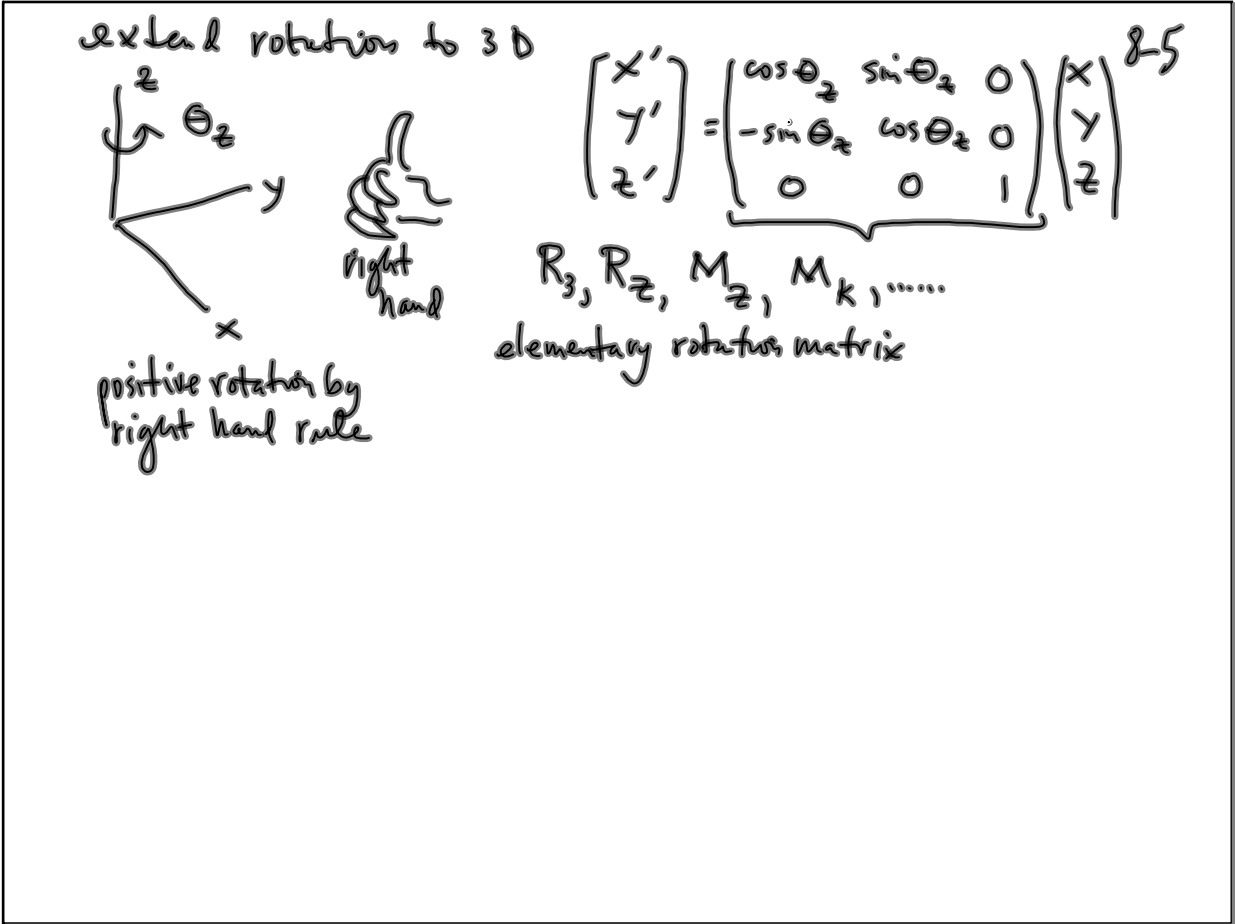 extend rotation to 3D
8-5
z
θz
y
x
right
hand
positive rotation by
right hand rule
x' cosθz sinθz 0 x
y' = -sinθz cosθz 0 y
z' 0 0 1 z
R3, Rz, Mz, Mk, ......
elementary rotation matrix